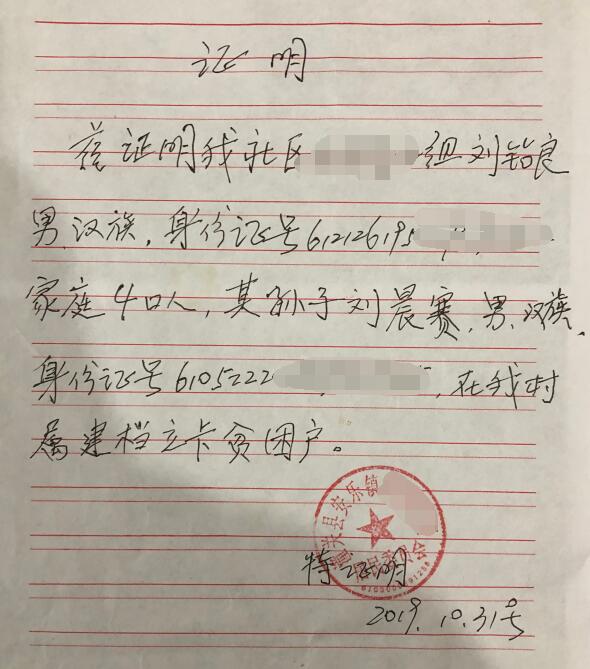 证明
兹证明我社区 组刘铅良
男、汉族，身份证号612126195
家庭4口人，其孙子刘晨赛，男、汉族、
身份证号6105222 ，在我村
属建档立卡贫困户。
县安乐镇
特证明
2019.10.31号